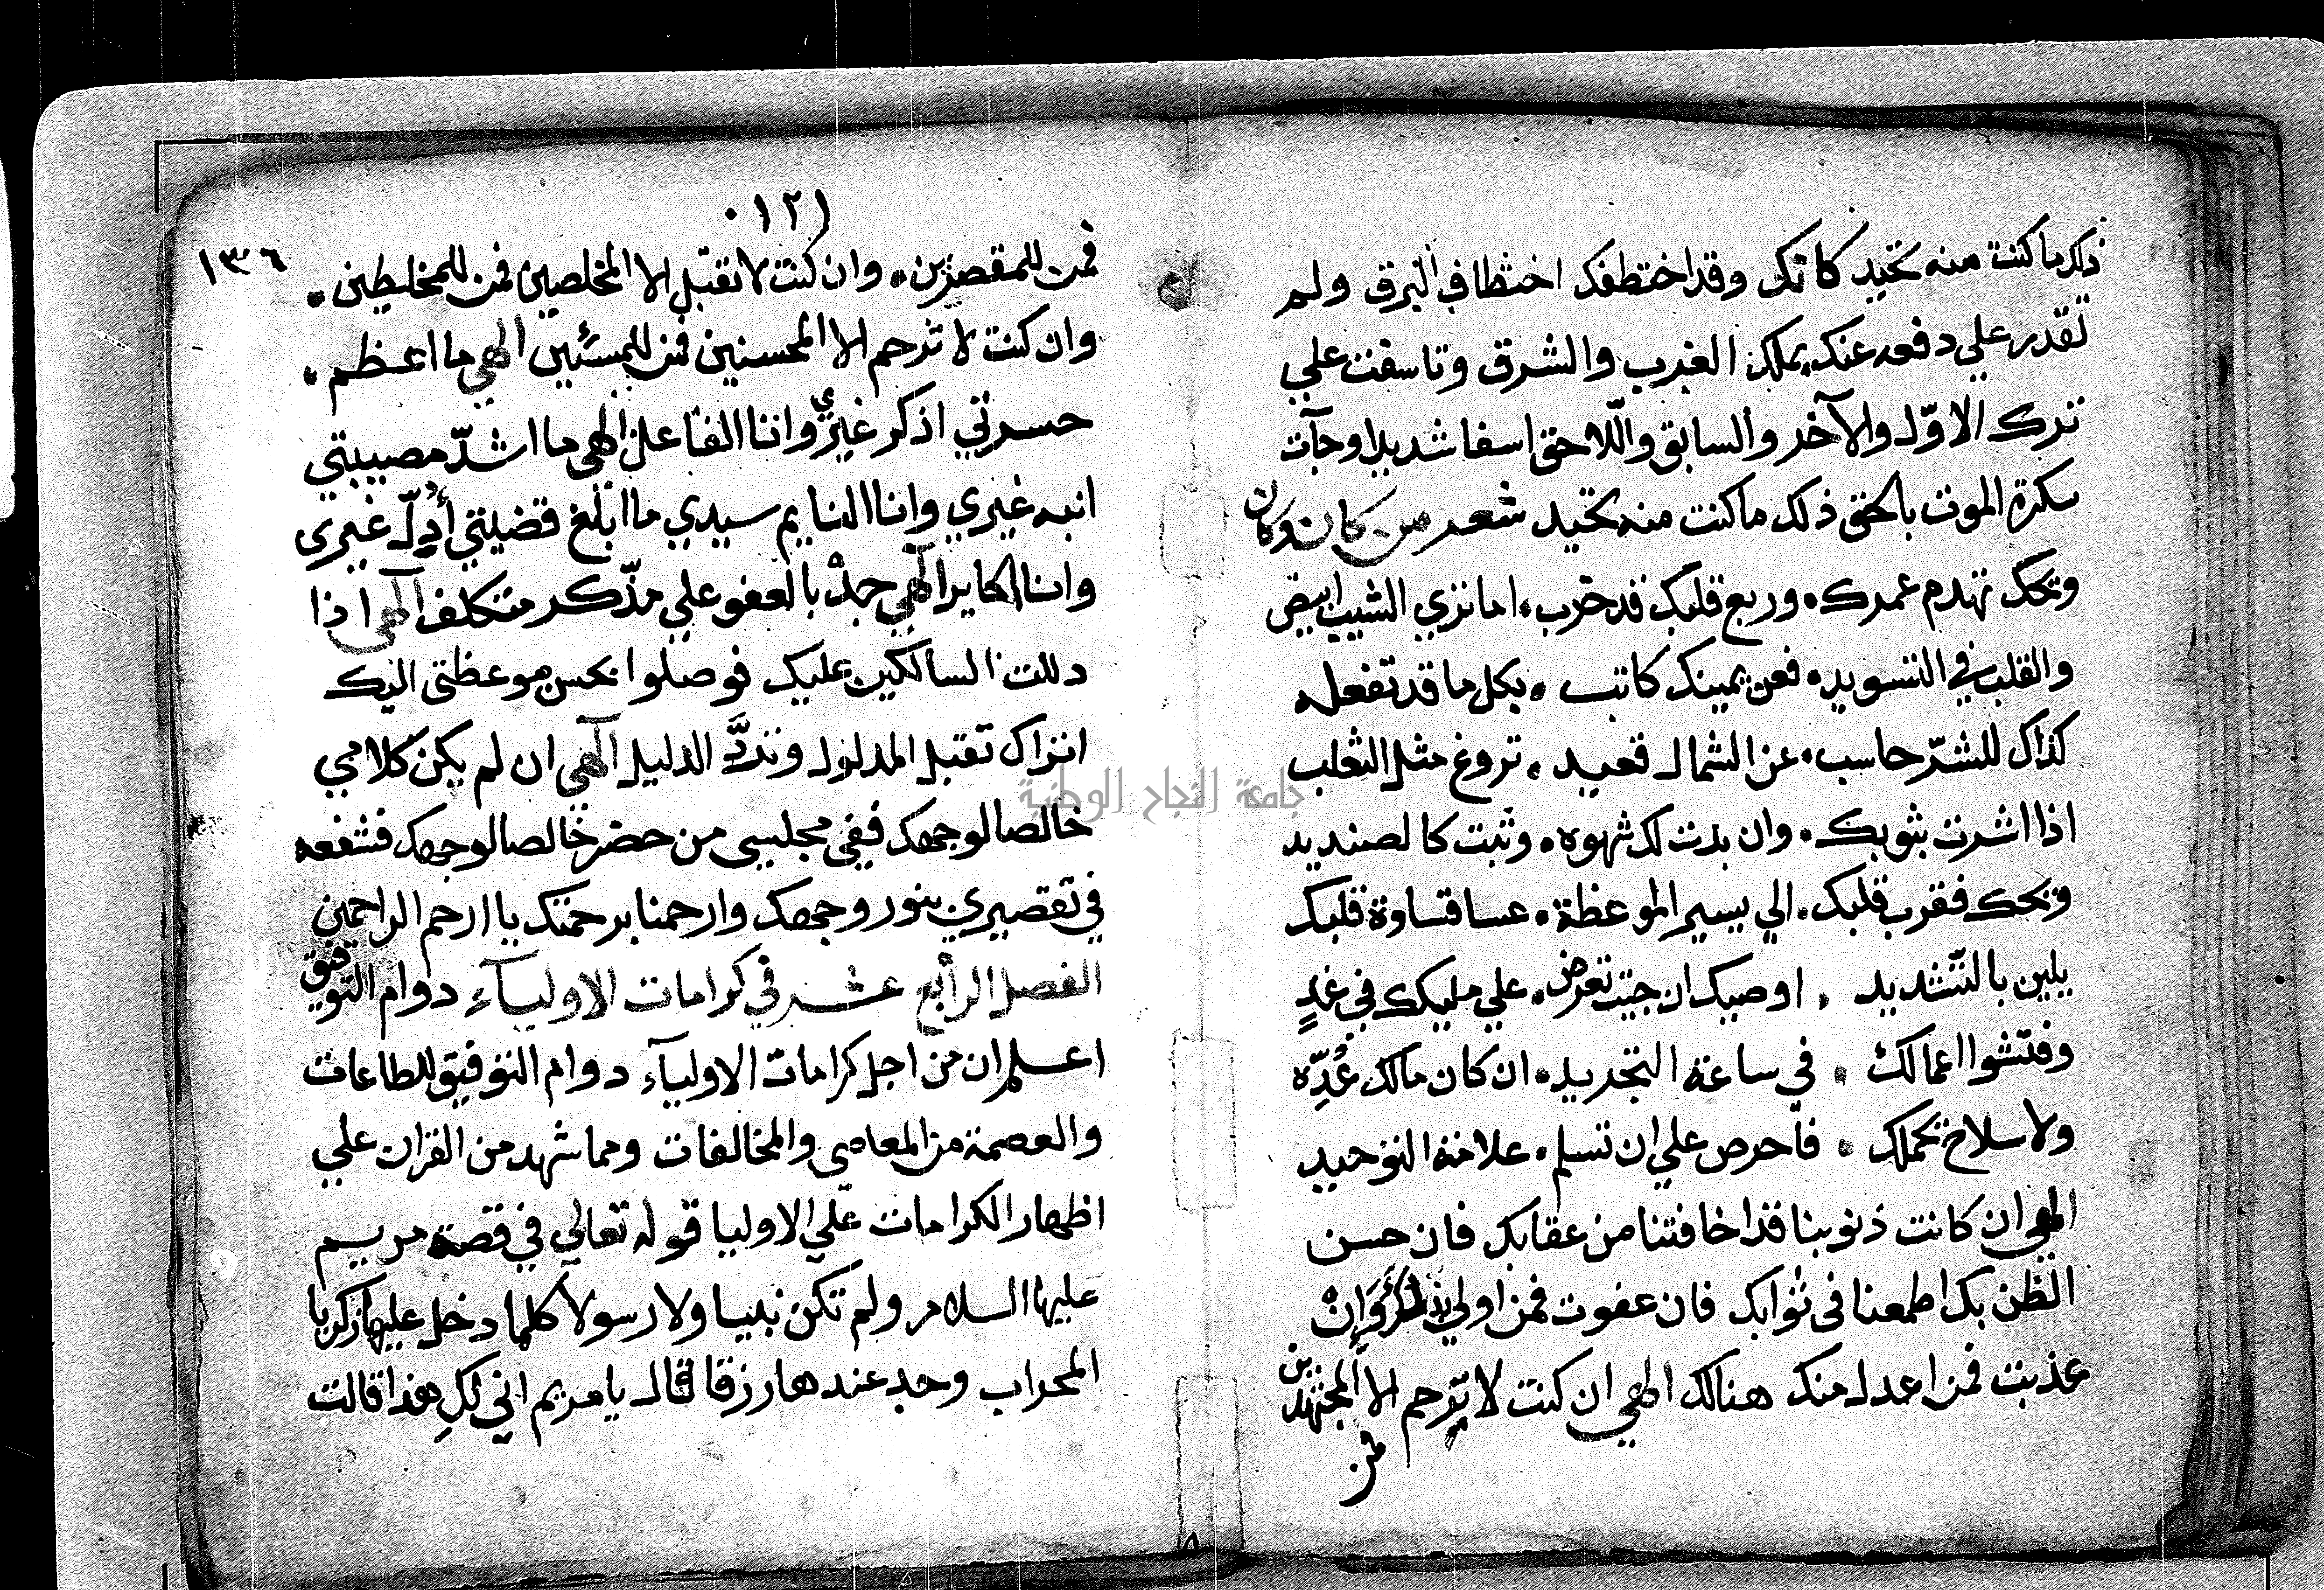 ذلك ما كنت منه تحيد كانك وقد اختطفك اختطاف البرق ولم
تقدر علي دفعه عنك بملك الغرب والشرق وتاسفت علي
ترك الاوّل والآخر والسابق واللّاحق اسفا شديدا وجآت
سكرة الموت بالحق ذلك ما كنت منه تحيد شعر من كان وكان
ويحك تهدم عمرك • وربع قلبك قد خرب • اما تري الشيب ابيض
والقلب في التسويد • فعن يمينك كاتب • بكل ما قد تفعله
كذاك للشرّ حاسب • عن الشمال قعيد • تروغ مثل الثعلب
اذا اشرت بثوبك • وان بدت لك شهوه • وثبت كالصنديد
ويحك فقرب قلبك • الي يسير الموعظة • عسا قساوة قلبك
يلين بالتشديد • اوصيك ان جيت تعرض • علي مليكك في غدٍ
وفتشوا اعمالك • في ساعة التجريد • ان كان مالك عُدِّه
ولا سلاح تحملك • فاحرص علي ان تسلم • علامة التوحيد
الهي ان كانت ذنوبنا قد اخافتنا من عقابك فان حسن
الظن بك اطمعنا في ثوابك فان عفوت فمن اولي بذلك وَإنْ
عذبت فمن اعدل منك هنالك الهي ان كنت لا ترحم الا المجتهدين
فمن
١٢١
١٣٦
فمن للمقصرين • وان كنت لا تقبل الا المخلصين فمن للمخلطين •
وان كنت لا ترحم الا المحسنين فمن للمسئين الهي ما اعظم •
حسرتي اذكر غيري وانا الغافل الهي ما اشدّ مصيبتي
انبه غيري وانا النايم سيدي ما ابلغ قضيتي أدلّ غيري
وانا الحاير الهي جُدْ بالعفو علي مذّكر متكلف الهي اذا
دللت السالكين عليك فوصلوا بحسن موعظتي اليك
اتراك تقبل المدلول وتردُّ الدليل الهي ان لم يكن كلامي
خالصا لوجهك ففي مجلسي من حضر خالصا لوجهك فشفعه
في تقصيري بنور وجهك وارحمنا برحمتك يا ارحم الراحمين
الفصل الرابع عشر في كرامات الاوليآء دوام التوفيق
اعلم ان من اجل كرامات الاوليآء دوام التوفيق للطاعات
والعصمة من المعاصي والمخالفات ومما شهد من القران علي
اظهار الكرامات علي الاوليا قوله تعالي في قصة مريم
عليها السلام ولم تكن نبيا ولا رسولا كلما دخل عليها زكريا
المحراب وجد عندها رزقا قال يا مريم اني لكِ هذا قالت
جامعة النجاح الوطنية